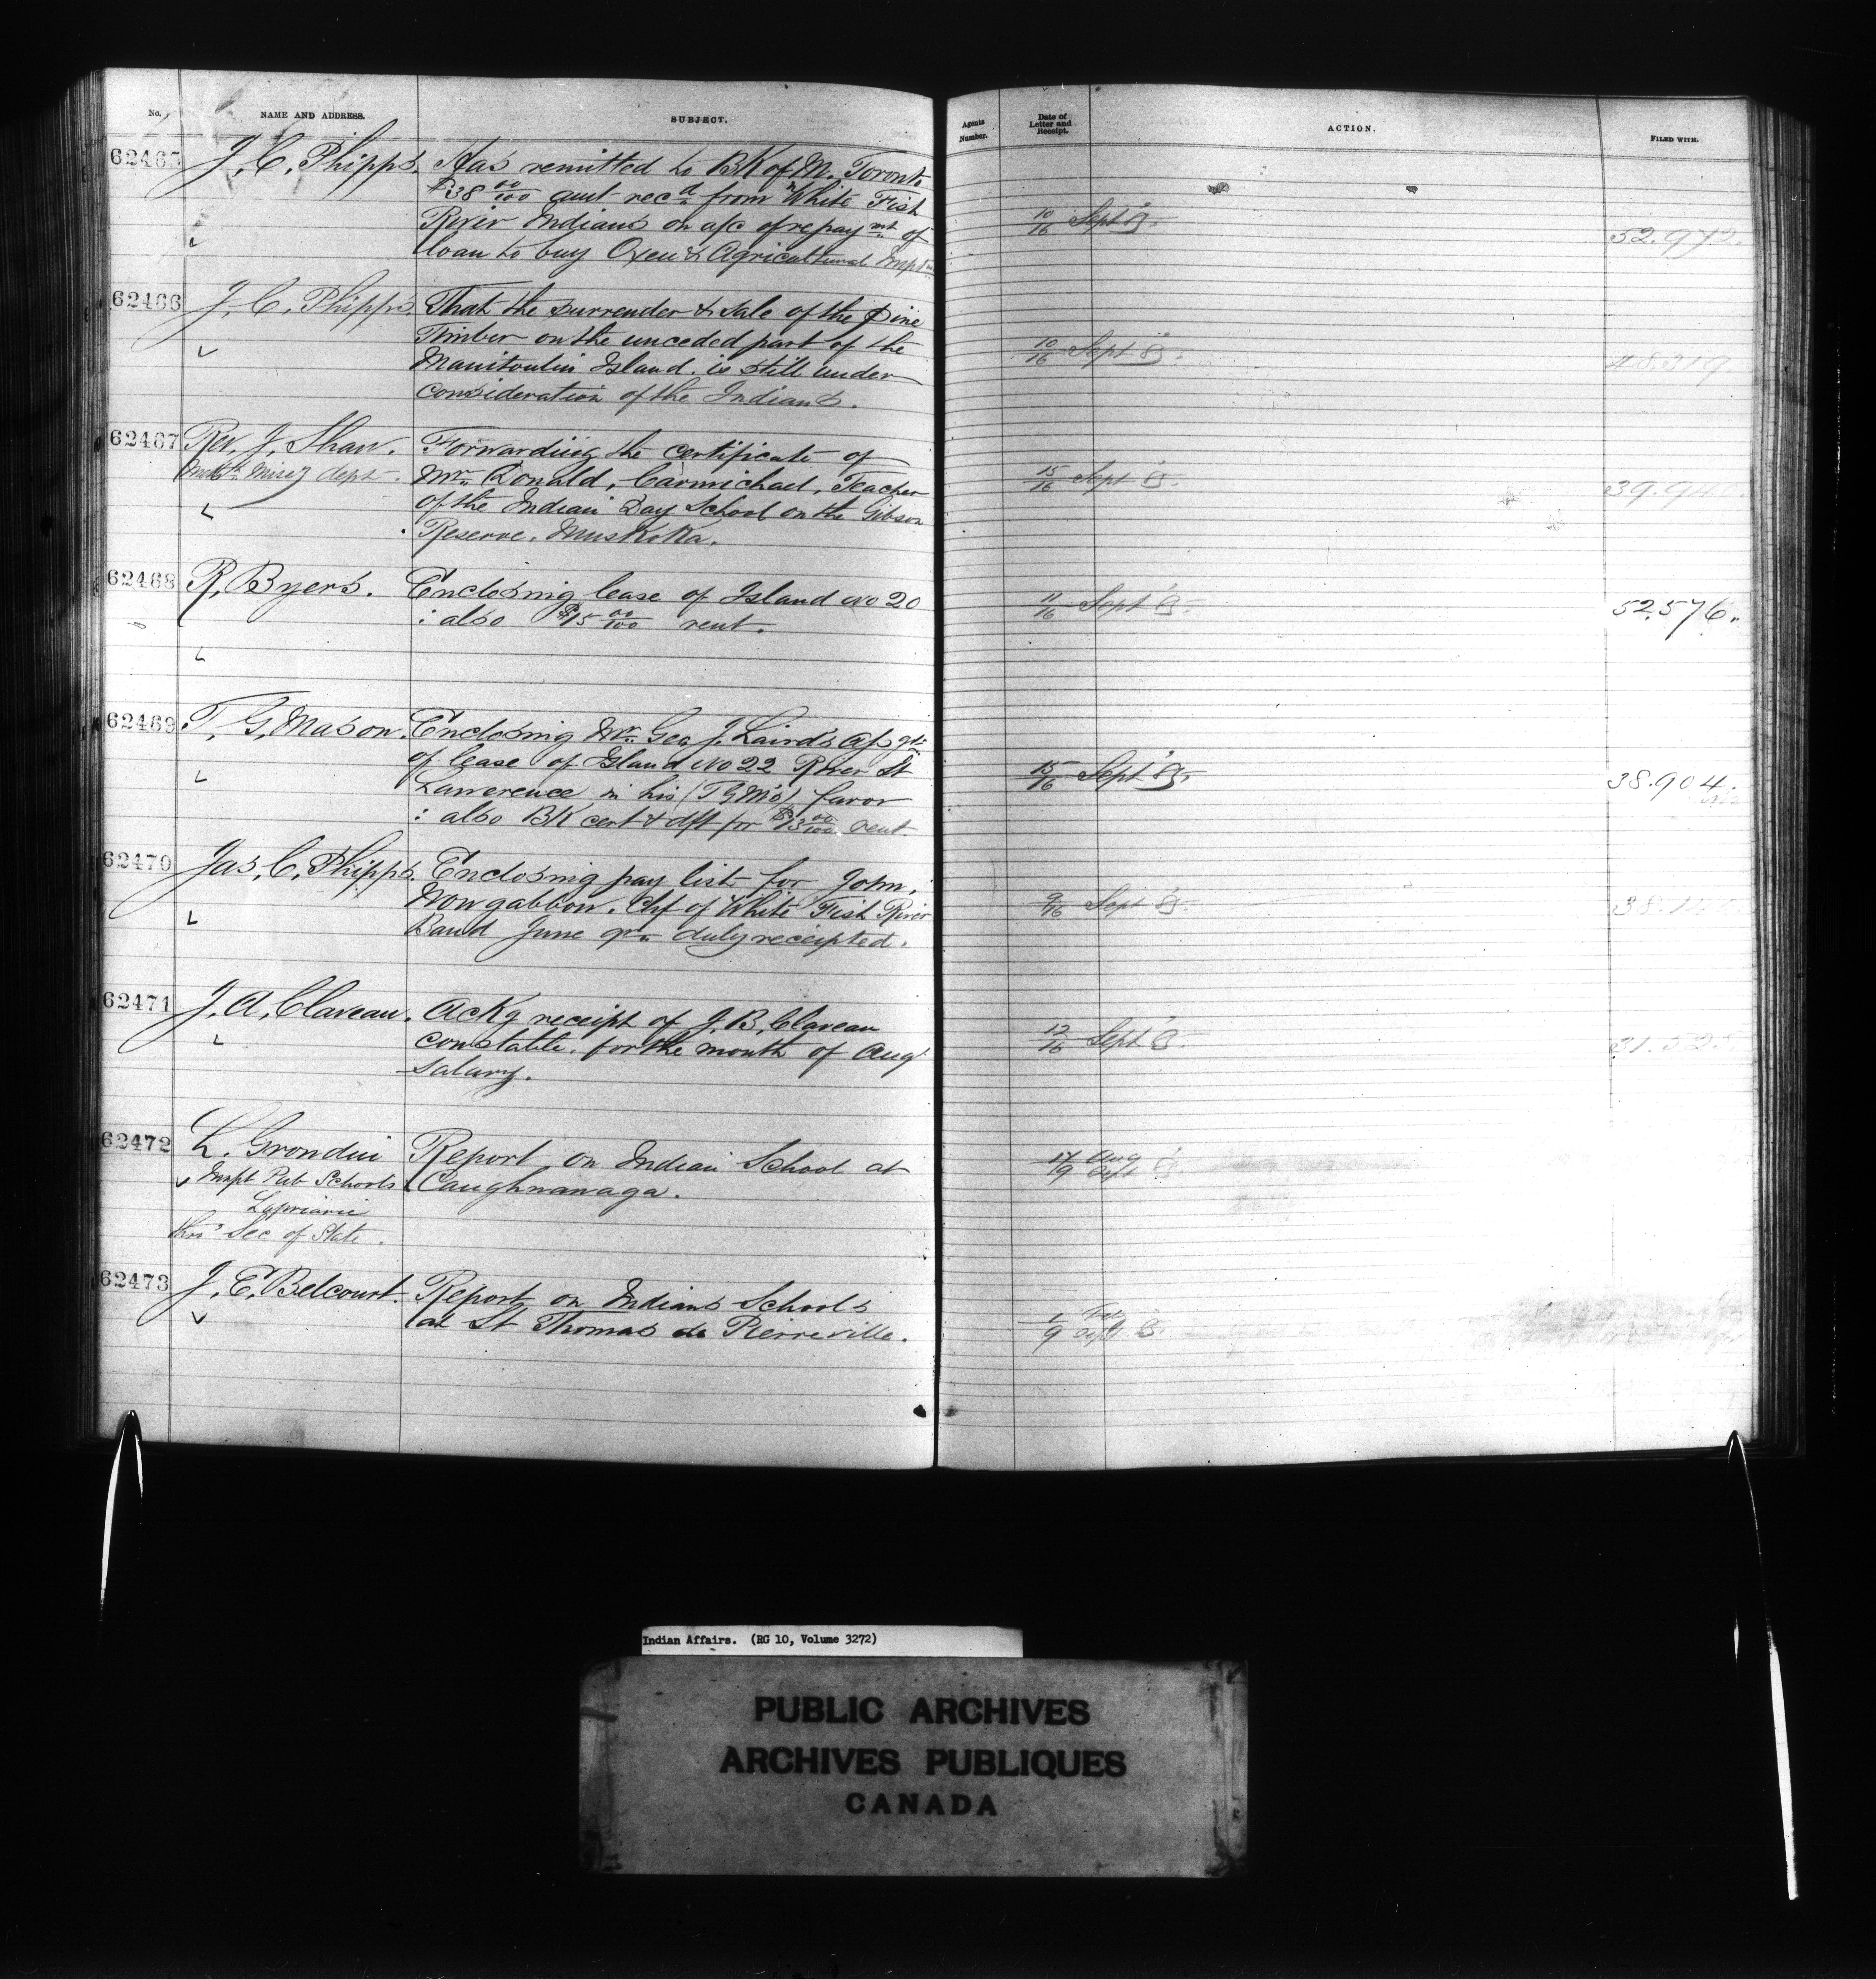 No. NAME AND ADDRESS. SUBJECT.
62465 J. C. Phipps. Has remitted to BK of M. Toronto
$38 00/100 amt recd from White Fish
River Indians on a/c of repaymt of
loan to buy Oxen & Agricultural Impts
62466 J. C. Phipps. That the surrender & sale of the pine
Timber on the unceded part of the
Manitoulin Island. is still under
consideration of the Indians.
62467 Rev. J. Shaw. Forwarding the certificate of
Misy dept. Mr Donald, Carmichael, Teacher
of the Indian Day School on the Gibson
Reserve. Muskoka.
62468 R. Byers. Enclosing lease of Island No 20
: also $15 00/100 rent.
62469 T. G. Mason. Enclosing Mr. Geo J. Laird's
of lease of Island No 22 River St
Lawerence in his (T G M's) favor
: also BK cert & dft for $13 00/100 rent
62470 Jas. C. Phipps. Enclosing pay list for John,
Wowgabbow. Chf of White Fish River
Band June qr duly receipted.
62471 J. A. Claveau. Ackg receipt of J. B. Claveau
constable. for the month of Augt
Salary.
62472 L. Grondin Report on Indian School at
Inspt Pub Schools Caughnawaga.
Lapriarie
thro' Sec of State.
62473 J. E. Belcourt. Report on Indians Schools
at St Thomas de Pierreville.
Agents Number. Date of Letter and Receipt. ACTION. FILED WITH.
10/16 Sept 52.972.
10/16 Sept 85. 48.319.
15/16 Sept 39.940.
11/16 Sept 52.576.
15/16 Sept 85. 38.904.
9/16 Sept 85.
12/16 Sept 31.525.
17 Aug
9 Sept
9 Sept
Indian Affairs. (RG 10, Volume 3272)
PUBLIC ARCHIVES
ARCHIVES PUBLIQUES
CANADA